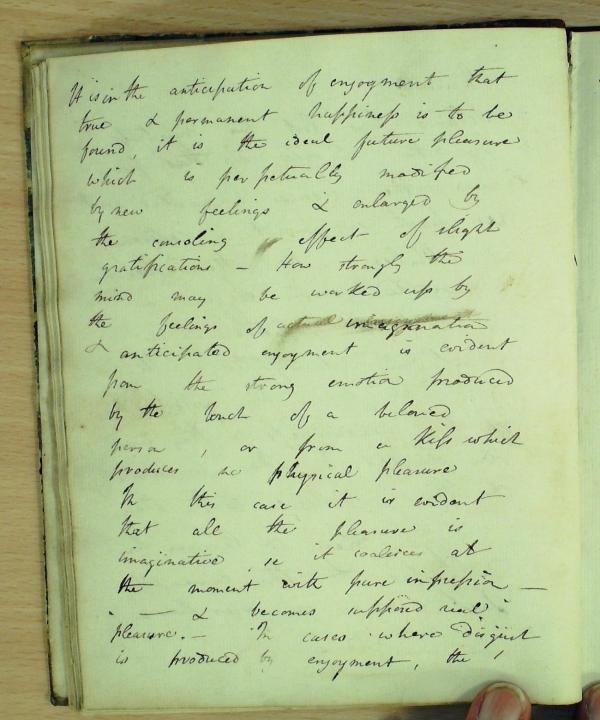 It is in the anticipation of enjoyment that
true & permanent happiness is to be
found, it is the ideal future pleasure
which is perpetually modified
by new feelings & enlarged by
the consoling effect of slight
gratifications – How strongly the
mind may be worked up by
the feelings of actual imagination
& anticipated enjoyment is evident
from the strong emotion produced
by the touch of a beloved
person, or from a Kiss which
produces no physical pleasure
In this case it is evident
that all the pleasure is
imaginative, ie it coalesces at
the moment with pure impression —
— & becomes supposed real
pleasure. – In cases where disgust
is produced by enjoyment, the